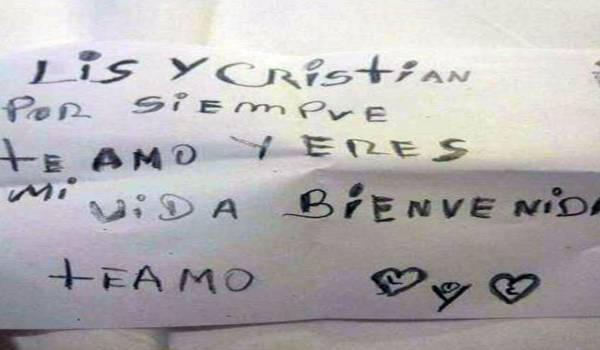 LiS Y CRistiAN
POR SiEMPVE
tE AMO Y ERES
Mi ViDA BiENVENiDA
tEAMO